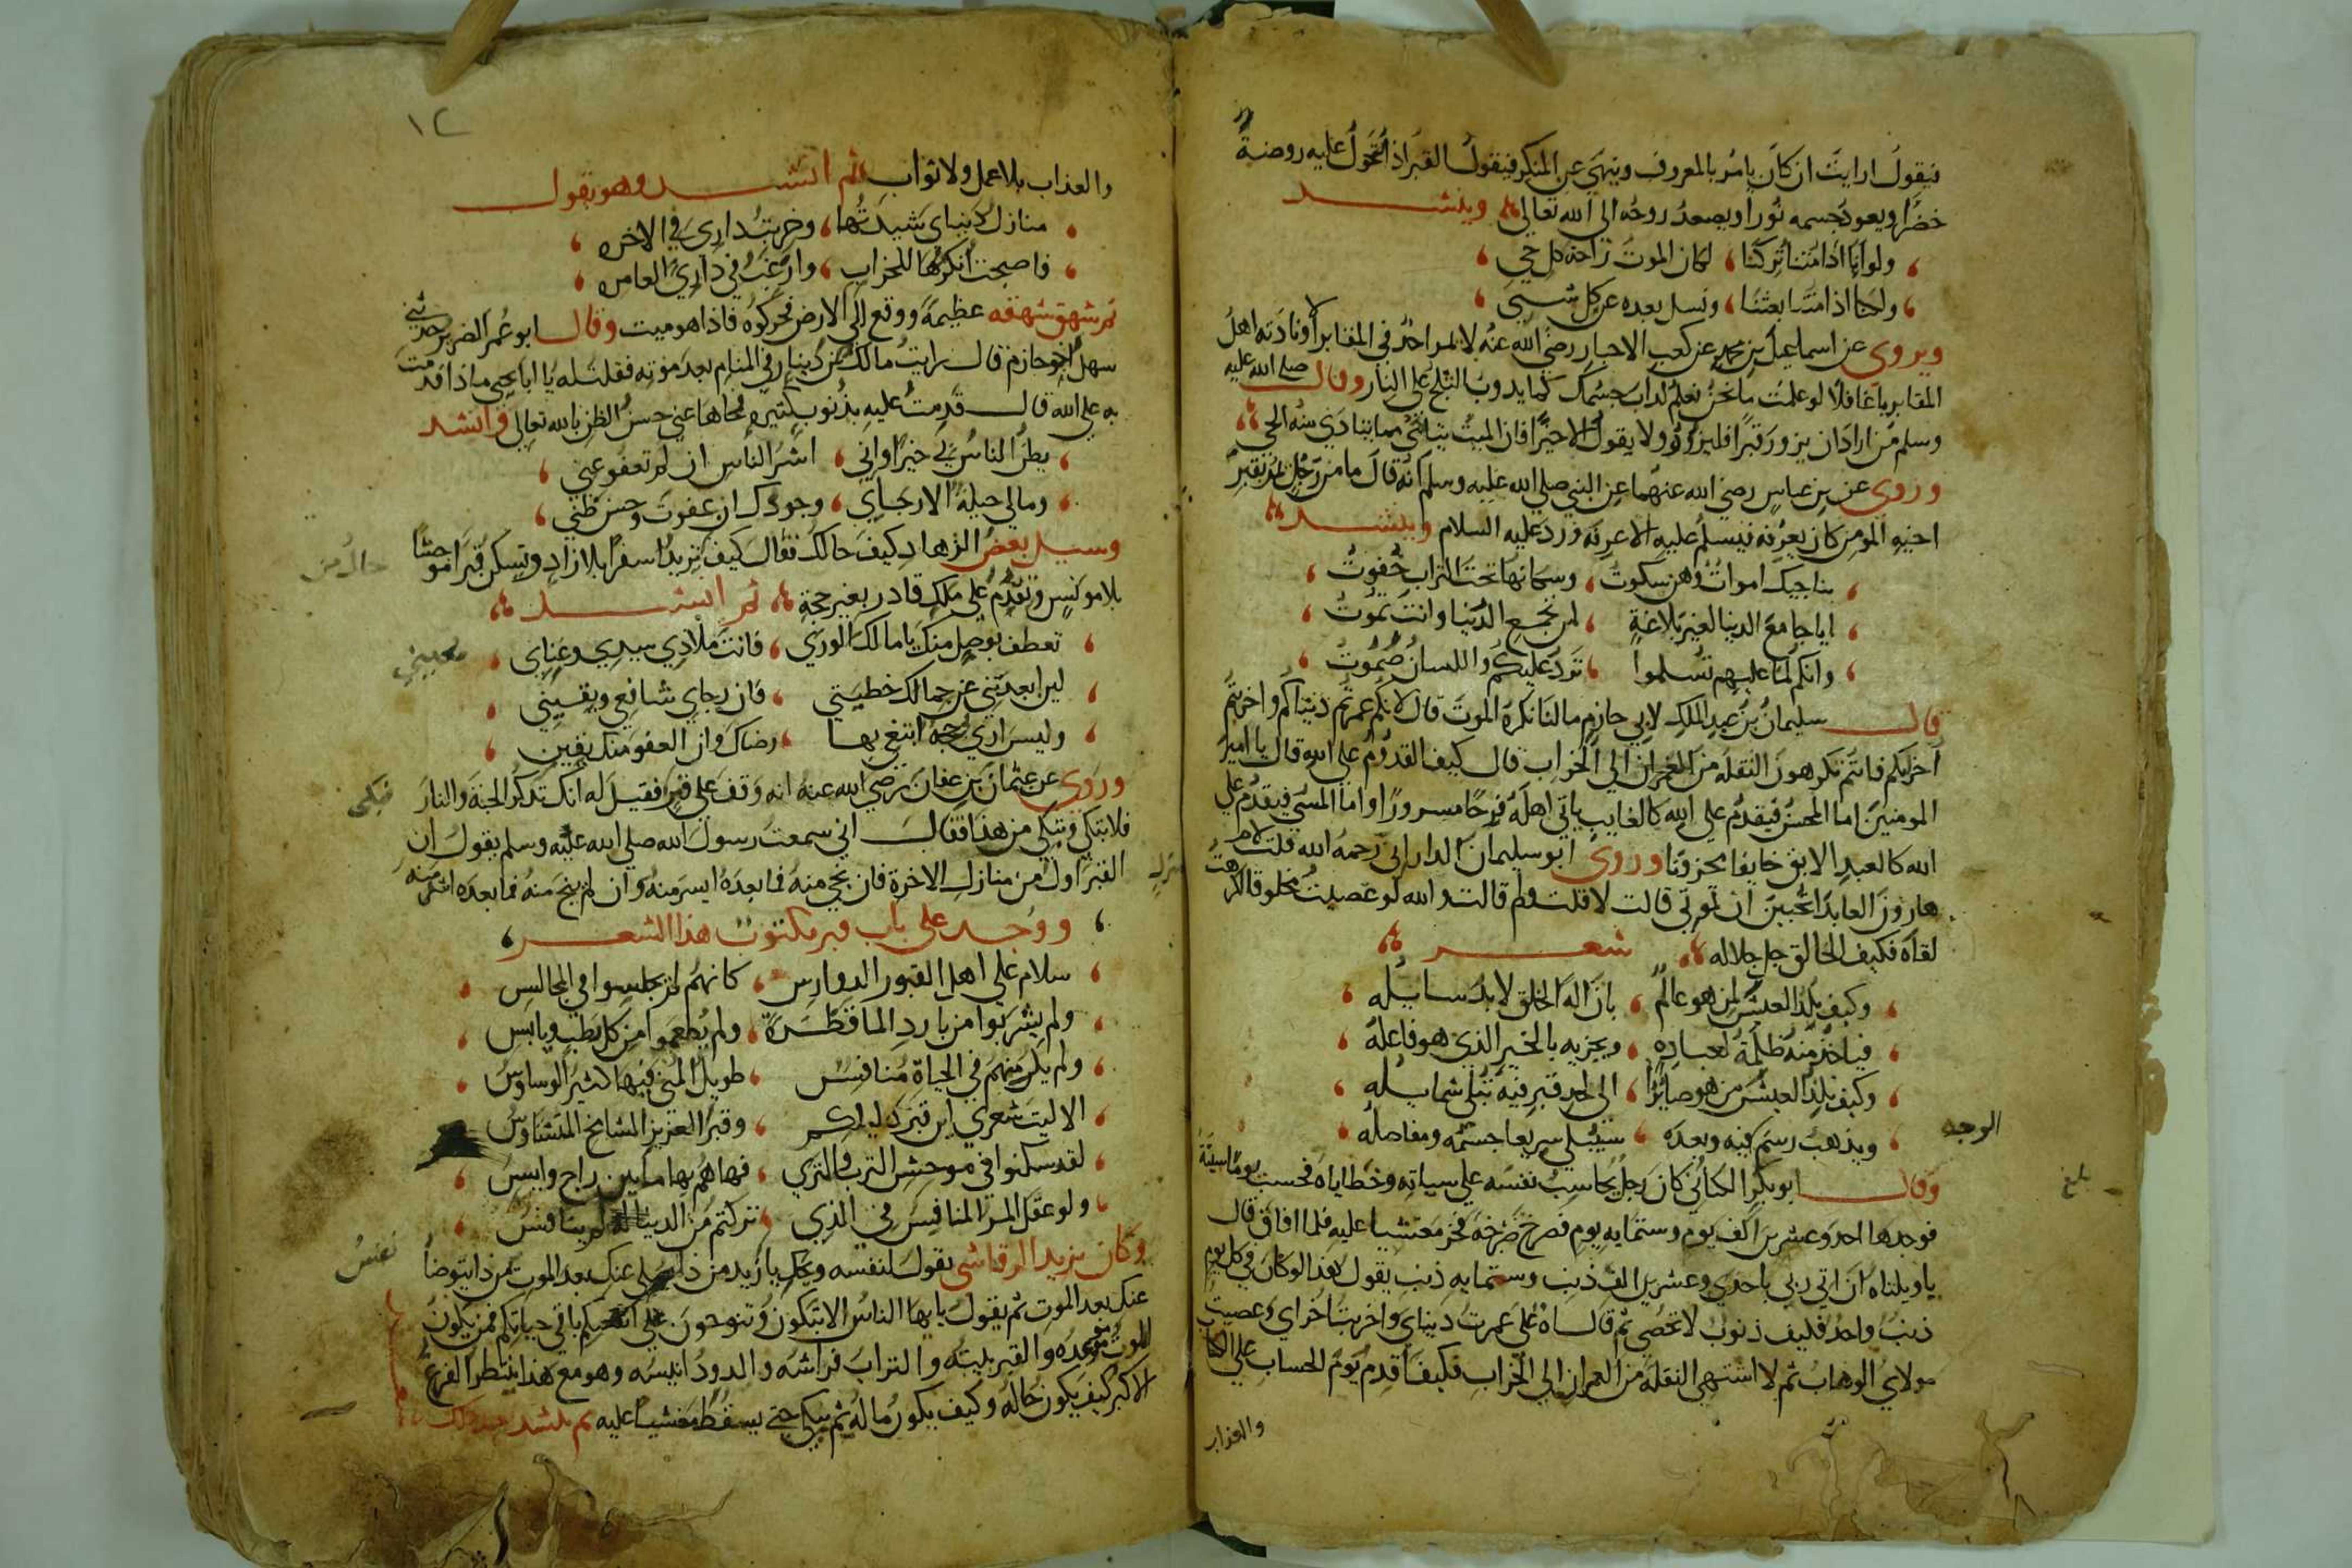 فيقول ارايت ان كان يامر بالمعروف وينهى عن المنكر فيقول القبر اذا تحول عليه روضة
خضرا ويعود جسمه نورا ويصعد روحه الى الله تعالى وينشد
ولو انا اذا متنا تركنا لكان الموت راحة كل حي
ولكنا اذا متنا بعثنا ونسل بعده عن كل شي
ويروى عن اسماعيل بن محمد عن كعب الاحبار رضي الله عنه لا يمر احد في المقابر الا ونادته اهل
المقابر يا غافلا لو علمت ما نحن نعلم لذاب جسمك كما يذوب الثلج على النار وقال صلى الله عليه
وسلم من اراد ان يزور قبرا فليزوره ولا يقول الا خيرا فان الميت يتاذى مما يتاذى منه الحي
وروى عن بن عباس رضي الله عنهما عن النبي صلى الله عليه وسلم انه قال ما من رجل يمر بقبر
اخيه المومن كان يعرفه فيسلم عليه الا عرفه ورد عليه السلام وينشد
يناجيك اموات وهن سكوت وسكانها تحت التراب خفوت
ايا جامع الدنيا لغير بلاغة لمن تجمع الدنيا وانت تموت
وانكم لمنا عليهم تسلموا نرد عليكم واللسان صموت
قال سليمان بن عبد الملك لابي حازم ما لنا نكره الموت قال لانكم عمرتم دنياكم واخربتم
اخرتكم فانتم تكرهون النقلة من العمران الى الخراب قال كيف القدوم على الله قال يا امير
المومنين اما المحسن فيقدم على الله كالغايب ياتي اهله فرحا مسرورا واما المسي فيقدم على
الله كالعبد الابق خايفا محزونا وروى ابو سليمان الداراني رحمه الله قلت لام
هارون العابدة اتحبين ان تموتي قالت لا قلت ولم قالت والله لو عصيت مخلوقا لكرهت
لقاه فكيف الخالق جل جلاله شعر
وكيف يلذ العيش من هو عالم بان اله الخلق لا بد سايله
فياخذ منه ظلمة لعباده ويجزيه بالخير الذي هو فاعله
وكيف يلذ العيش من هو صايرا الى لحد قبر فيه تبلى شمايله
ويذهب رسم فيه وبعده سيبلى سريعا جسمه ومفاصله
الوجه
وقال ابو بكر الكتاني كان رجل يحاسب نفسه على سياته وخطاياه فحسب يوما سنة
بلغ
فوجدها احد وعشرين الف يوم وستمايه يوم فصرخ صرخة فخر مغشيا عليه فلما افاق قال
يا ويلتاه ان اتي ربي باحدى وعشرين الف ذنب وستمايه ذنب يقول هذا لو كان في كل يوم
ذنب واحد فكيف ذنوب لا تحصى ثم قال اه على عمرت دنياي واخربت اخراي وعصيت
مولاي الوهاب ثم لا اشتهي النقلة من العمران الى الخراب فكيف اقدم يوم الحساب على
والعذاب
١٢
والعذاب بلا عمل ولا ثواب ثم انشد وهو يقول
منازل دنياي شيدتها وخربت داري في الاخره
فاصبحت انكرها للخراب وارغب في داري العامره
ثم شهق شهقه عظيمة ووقع الى الارض فحركوه فاذا هو ميت وقال ابو عمر الضرير حدثني
سهل اخو حازم قال رايت مالك بن دينار في المنام بعد موته فقلت له يا ابا يحيى ماذا قدمت
به على الله قال قدمت عليه بذنوب كثيره فمحاها عني حسن الظن بالله تعالى وانشد
يظن الناس بي خيرا واني اشر الناس ان لم تعفو عني
ومالي حيلة الا رجاي وجودك ان عفوت وحسن ظني
وسيل بعض الزهاد كيف حالك فقال كيف يزيد سفرا بلا زاد وتسكن قبرا موحشا
حال من
بلا مونس وتقدم على ملك قادر بغير حجة ثم انشد
تعطف بوصل منك يا مالك الورى فانت ملاذي سيدي وغياي
معيني
لين ابعدتني عن جمالك خطيتي فان رجاي شافعي ويقيني
وليس ارى حجه ابتغي بها رضاك وان العفو منك يقين
وروى عن عثمان بن عفان رضي الله عنه انه وقف على قبر فقيل له انك تذكر الجنة والنار
فبكى
فلا تبكي وتبكي من هذا فقال اني سمعت رسول الله صلى الله عليه وسلم يقول ان
القبر اول من منازل الاخرة فان نجي منه فما بعده ايسر منه وان لم ينج منه فما بعده اشد منه
منزل
ووجد على باب قبر مكتوب هذا الشعر
سلام على اهل القبور الدوارس كانهم لم يجلسوا في المجالس
ولم يشربوا من بارد الما قطرة ولم يطعموا من كل رطب ويابس
ولم يك منهم في الحياة منافس طويل المنى فيها كثير الوساوس
الا ليت شعري اين قبر ذليلكم وقبر العزيز المشامخ المتشاوس
لقد سكنوا في موحش الترب والثرى فها هم بها ما بين راج وايس
ولو عقل المر المنافس في الذي تركتم من الدنيا لم ينافس
وكان يزيد الرقاشي يقول لنفسه ويحك يا زيد من ذا يصلي عنك بعد الموت من ذا يتوضا
نفسي
عنك بعد الموت ثم يقول يا ايها الناس الا تبكون وتنوحون على انفسكم باقي حياتكم فمن يكون
الموت موعده والقبر بيته والتراب فراشه والدود انيسه وهو مع هذا ينتظر الفزع
الاكبر كيف يكون حاله وكيف يكون ماله ثم يبكي حتى يسقط مغشيا عليه ثم ينشد